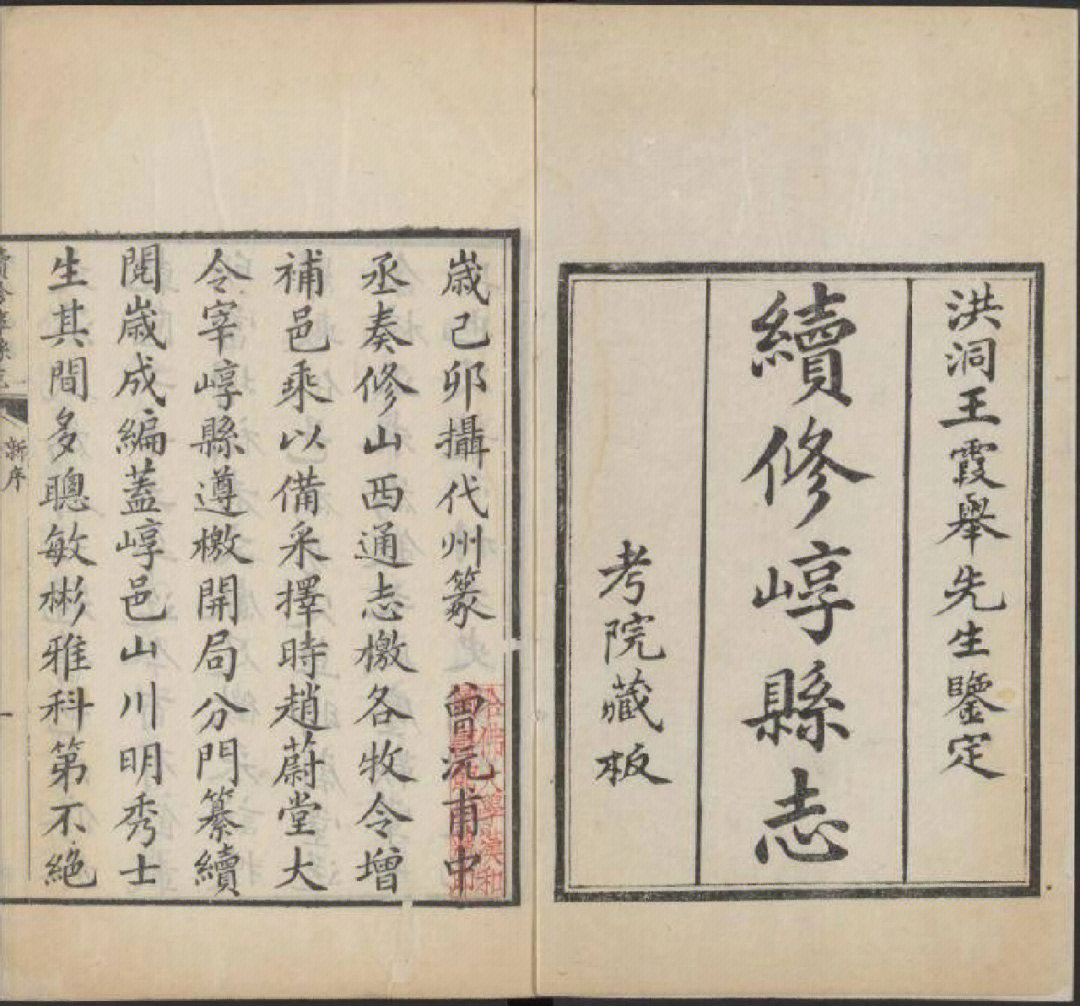 洪洞王霞舉先生鑒定
續修崞縣志
考院藏板
歲己卯攝代州篆　曾沅甫中
丞奏修山西通志檄各牧令增
補邑乘以備采擇時趙蔚堂大
令宰崞縣遵檄開局分門纂續
閱歲成編蓋崞邑山川明秀士
生其間多聰敏彬雅科第不絕
新序
一
哈佛大學漢和